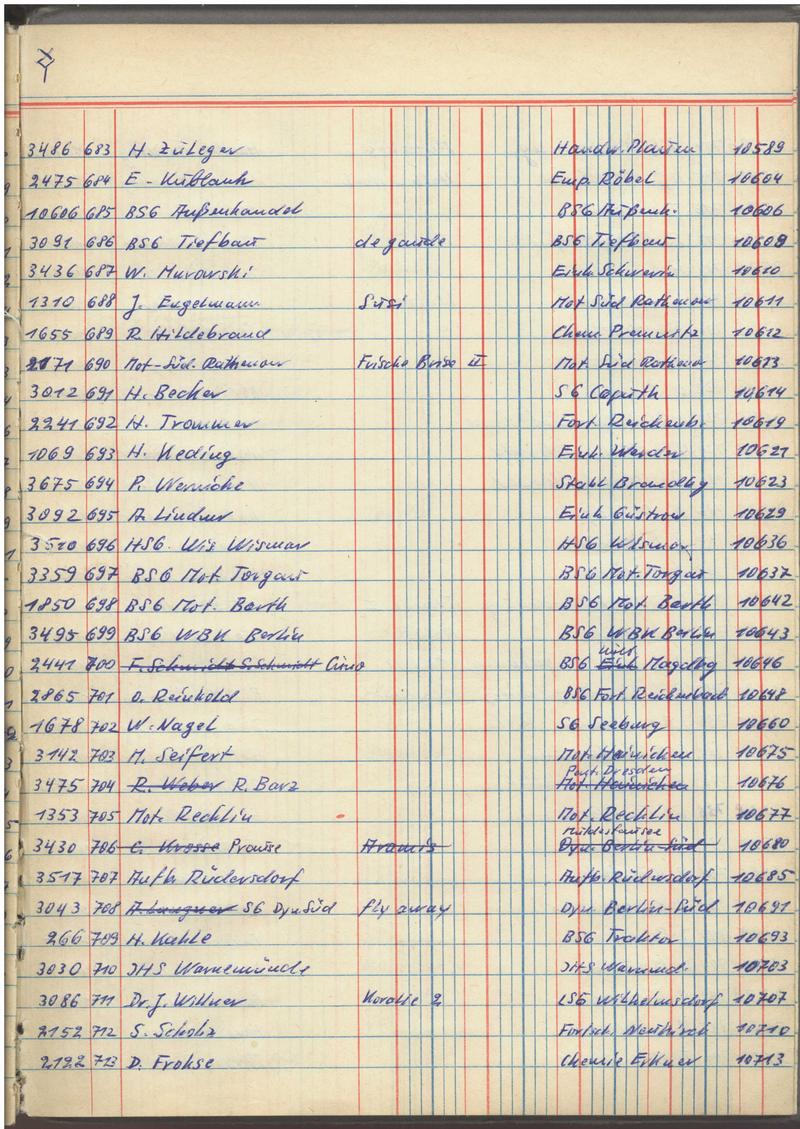 3486 683 H. Züleger Handw. Plauen 10589
2475 684 E. Kublank Emp. Röbel 10604
10606 685 BSG Außenhandel BSG Außenh. 10606
3091 686 BSG Tiefbau de gaude BSG Tiefbau 10609
3436 687 W. Murawski Einh. Schwerin 10610
1310 688 J. Engelmann Susi Mot Süd Rathenow 10611
1655 689 R. Hildebrand Chem. Premnitz 10612
2171 690 Mot-Süd. Rathenow Frische Brise II Mot. Süd Rathenow 10613
3012 691 H. Becker SG Caputh 10614
2241 692 H. Trommer Fort. Reichenb. 10619
1069 693 H. Keding Einh. Werder 10621
3675 694 P. Wernicke Stahl Brandbg 10623
3092 695 A. Lindner Einh Güstrow 10629
3520 696 HSG. Wis Wismar HSG Wismar 10636
3359 697 BSG Mot Torgau BSG Mot. Torgau 10637
1850 698 BSG Mot. Barth BSG Mot. Barth 10642
3495 699 BSG WBK Berlin BSG WBK Berlin 10643
2441 700 F. Schmidt S. Schmidt BSG Einh Magdbg 10646
2865 701 O. Reinhold BSG Fort Reichenbach 10648
1678 702 W. Nagel SG Seeburg 10660
3142 703 M. Seifert Mot. Hainichen 10675
Post. Dresden
3475 704 R. Weber R. Barz Mot. Hainichen 10676
1353 705 Mot. Rechlin Mot. Rechlin 10677
3430 706 C. Krosse Prause Aramis Dyn. Berlin Süd 10680
3517 707 Aufb. Rüdersdorf Aufb. Rüdersdorf 10685
3043 708 A. Langner SG Dyn. Süd fly away Dyn. Berlin-Süd 10691
266 709 H. Kahle BSG Traktor 10693
3030 710 IHS Warnemünde IHS Warnemd. 10703
3086 711 Dr. J. Willner Koralle 2 LSG Wilhelmsdorf 10707
2152 712 S. Scholz Fortsch. Neukirch 10710
2122 713 D. Frohse Chemie Erkner 10713